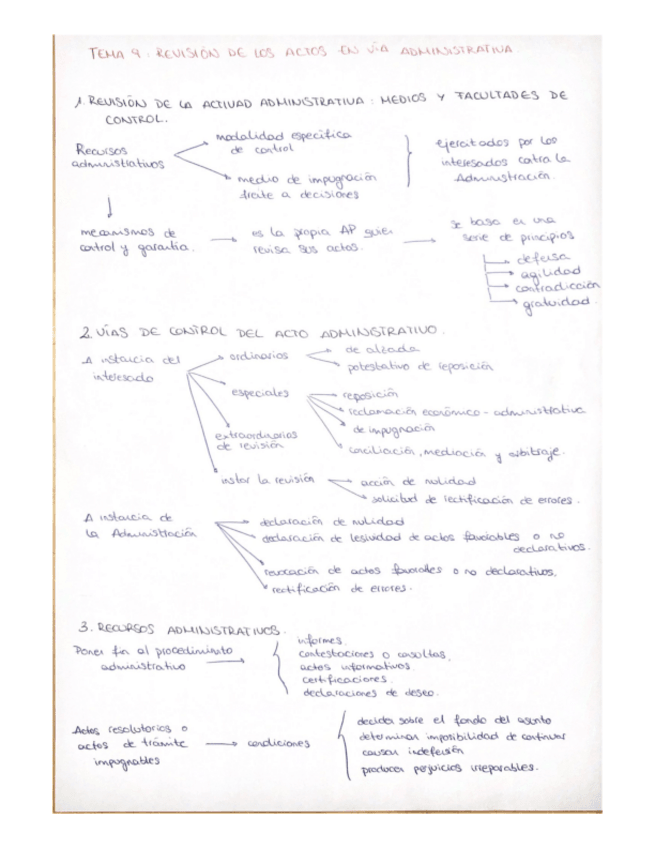 TEMA 9. REVISIÓN DE LOS ACTOS EN VÍA ADMINISTRATIVA.
1. REVISIÓN DE LA ACTIVAD ADMINISTRATIVA: MEDIOS Y FACULTADES DE
CONTROL.
Recursos
administrativos
modalidad específica
de control
medio de impugnación
frente a decisiones
ejercitados por los
interesados contra la
Administración.
mecanismos de
control y garantía.
es la propia AP quien
revisa sus actos.
se basa en una
serie de principios
defensa
agilidad
contradicción
gratuidad.
2. VÍAS DE CONTROL DEL ACTO ADMINISTRATIVO.
A instancia del
interesado
ordinarios
de alzada
potestativo de reposición
especiales
reposición
reclamación económico-administrativa
de impugnación
conciliación, mediación y arbitraje.
extraordinarios
de revisión
instar la revisión
acción de nulidad
solicitud de rectificación de errores.
A instancia de
la Administración
declaración de nulidad
declaración de lesividad de actos favorables o no
declarativos.
revocación de actos favorables o no declarativos.
rectificación de errores.
3. RECURSOS ADMINISTRATIVOS.
Poner fin al procedimiento
administrativo
informes.
contestaciones o consultas.
actos informativos
certificaciones
declaraciones de deseo.
Actos resolutorios o
actos de trámite
impugnables
condiciones
decida sobre el fondo del asunto
determinan imposibilidad de continuar
causan indefensión
producen perjuicios irreparables.